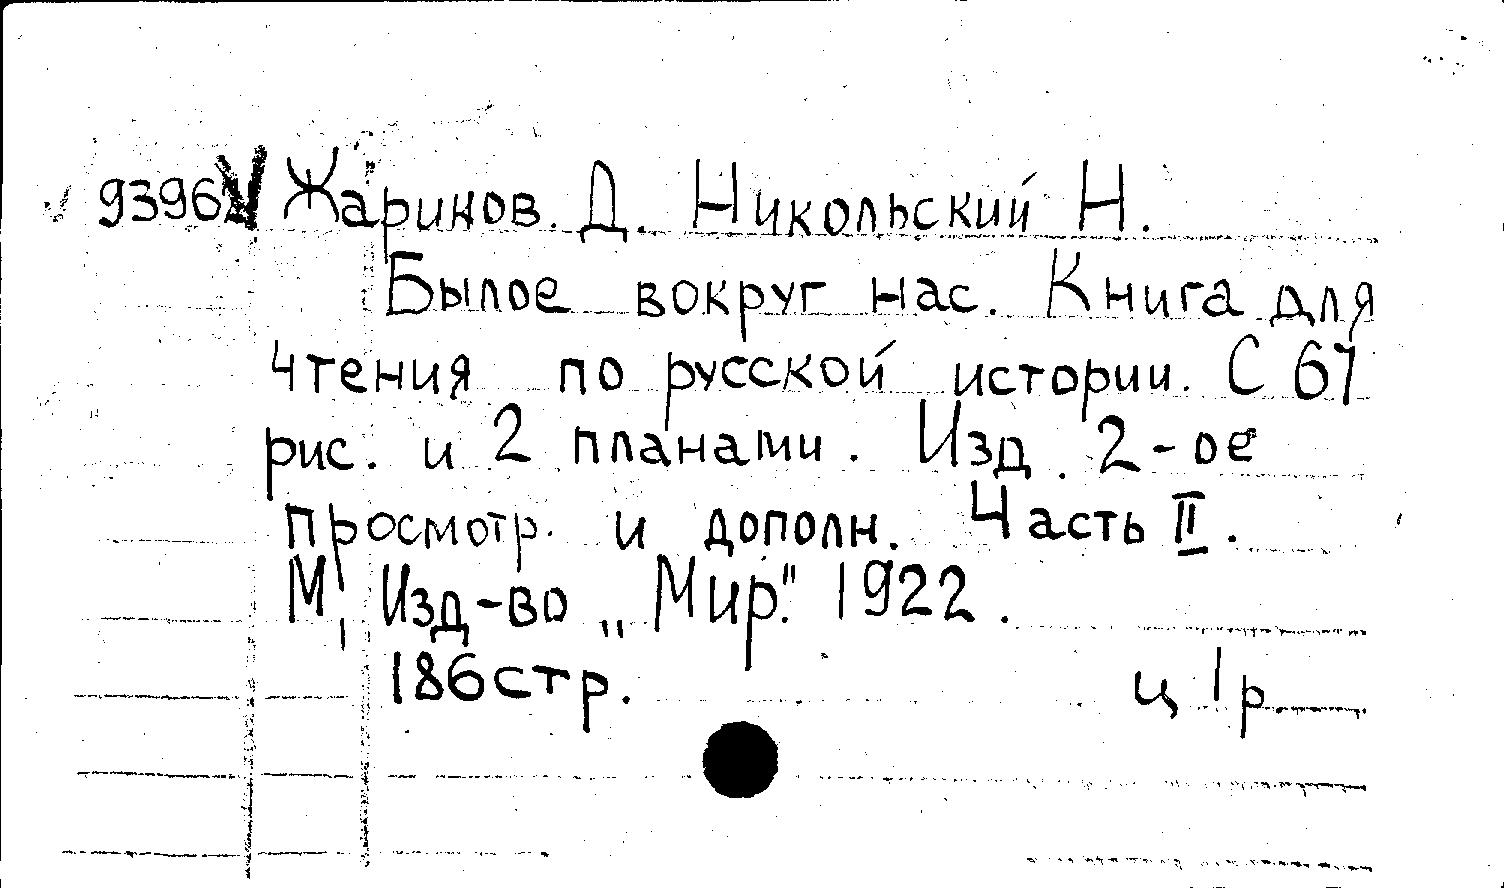 9396 V Жаринов. Д. Никольский Н.
Былое вокруг нас. Книга для
чтения по русской истории. С 67
рис. и 2 планами. Изд. 2-ое
просмотр. и дополн. Часть II.
М, Изд-во „Мир". 1922.
186стр. ц 1р.